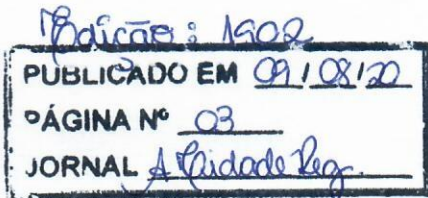 Edição: 1902
PUBLICADO EM 09/08/20
PÁGINA Nº 03
JORNAL A Cidade Reg.